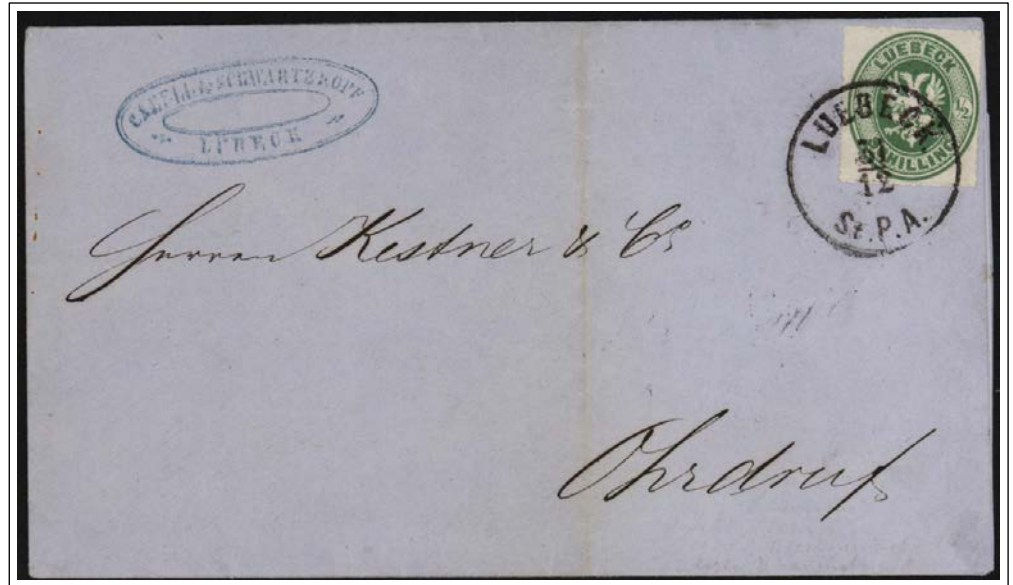 SCHWARTZKOPF
LÜBECK
LUEBECK
1/2
SCHILLING
LUEBECK
31
12
St. P. A.
Herren Kestner & Co
Ohrdruf